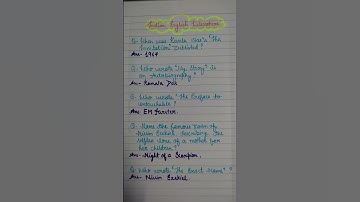 Indian English Literature
Q- When was Kamla Das's "The
Invitation" Published?
Ans- 1964
Q- Who wrote "My Story" is
an Autobiography?
Ans- Kamala Das
Q- Who wrote "The Preface to
Untouchable"?
Ans EM Forster.
Q- Name the famous poem of
Nissim Ezekiel, describing the
selfless love of a mother for
her children?
Ans- Night of a Scorpion.
Q- Who wrote "The Exact Name"?
Ans- Nissim Ezekiel